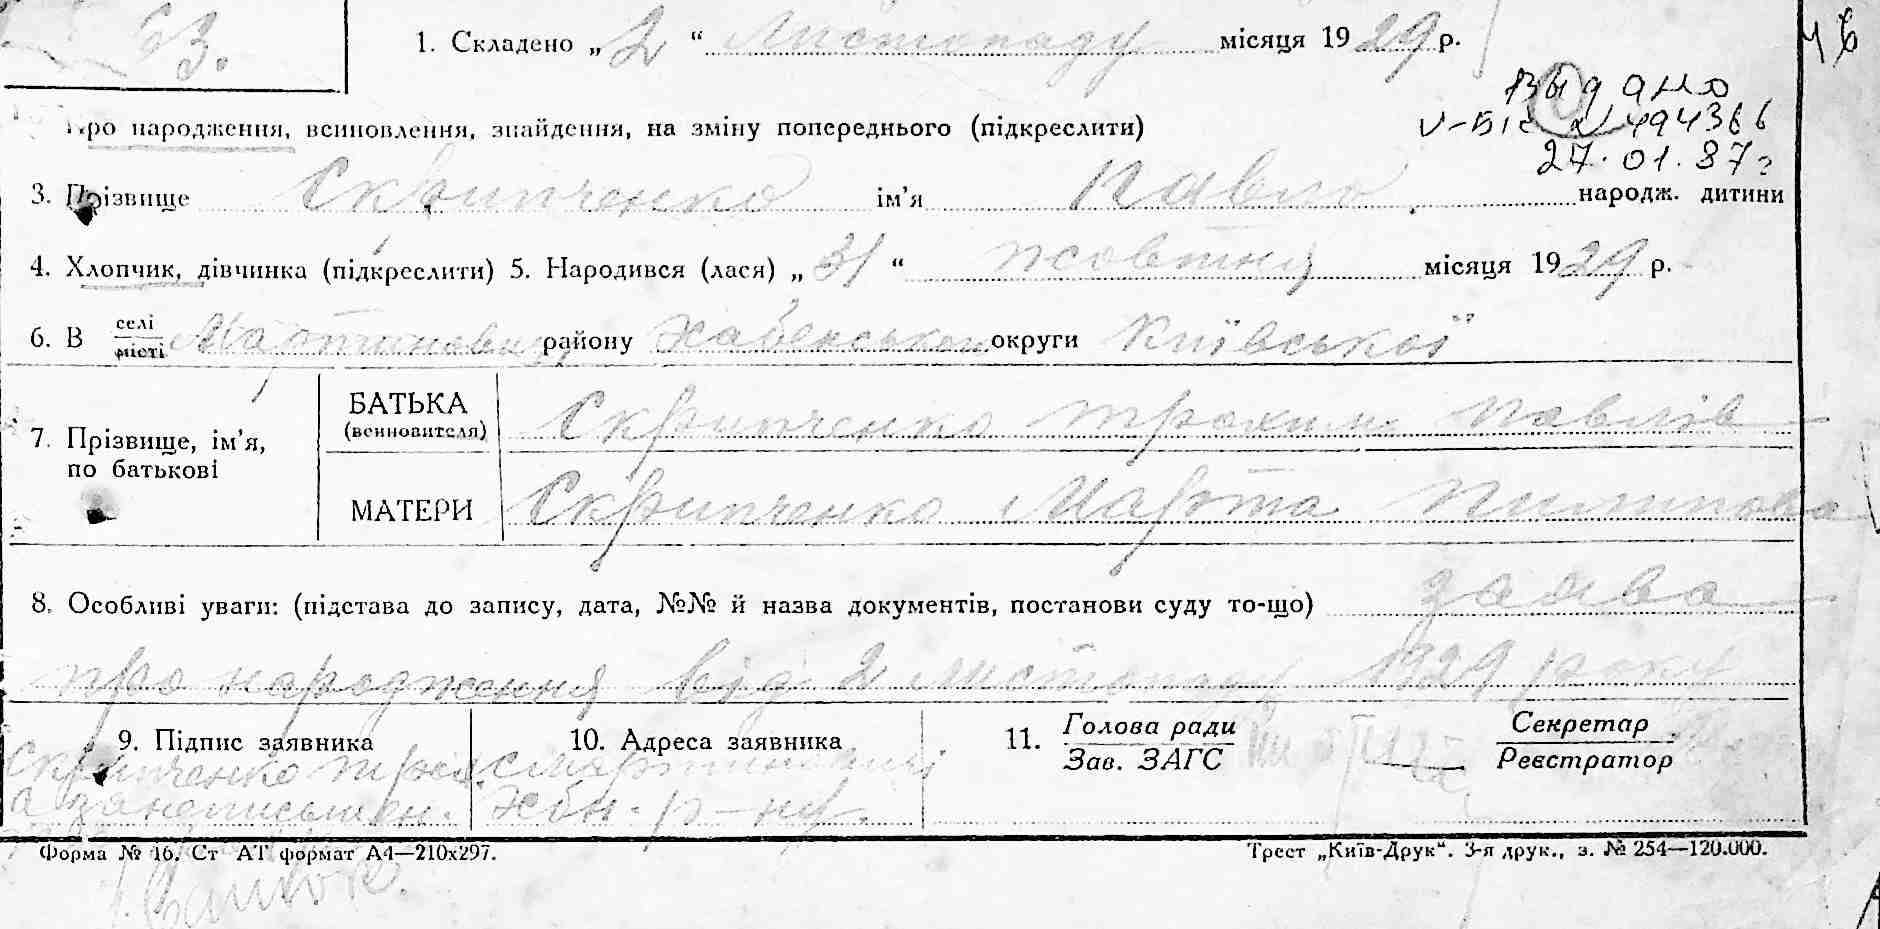 53.
1. Складено „ 2 “ Листопаду місяця 1929 р.
46
Выдано
V-БК № 494366
27.01.87г
Про народження, всиновлення, знайдення, на зміну попереднього (підкреслити)
3. Прізвище Скрипченко ім’я Павло народж. дитини
4. Хлопчик, дівчинка (підкреслити) 5. Народився (лася) „ 31 “ жовтня місяця 1929 р.
6. В селі місті Мартиновичі району Хабенського округи Київської
7. Прізвище, ім’я, по батькові
БАТЬКА (всиновителя) Скрипченко Трохим Павлів
МАТЕРИ Скрипченко Марта Пилипова
8. Особливі уваги: (підстава до запису, дата, №№ й назва документів, постанови суду то-що) заява
про народження від 2 листопаду 1929 року
9. Підпис заявника
Скрипченко
а за неписьмен.
10. Адреса заявника
с Мартиновичі
Хбн. р-ну.
11. Голова ради Зав. ЗАГС
Секретар Реєстратор
Форма № 16. Ст АТ формат А4—210х297.
Трест „Київ-Друк“. 3-я друк., з. № 254—120.000.